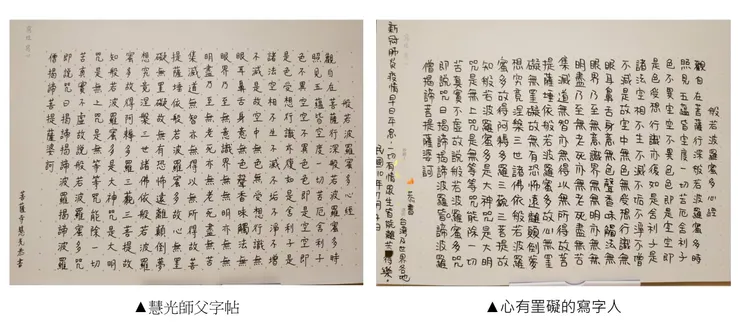 般若波羅蜜多心經
觀自在菩薩行深般若波羅蜜多時
照見五蘊皆空度一切苦厄舍利子
色不異空空不異色色即是空空即
是色受想行識亦復如是舍利子是
諸法空相不生不滅不垢不淨不增
不減是故空中無色無受想行識無
眼耳鼻舌身意無色聲香味觸法無
眼界乃至無意識界無無明亦無無
明盡乃至無老死亦無老死盡無苦
集滅道無智亦無得以無所得故菩
提薩埵依般若波羅蜜多故心無罣
礙無罣礙故無有恐怖遠離顛倒夢
想究竟涅槃三世諸佛依般若波羅
蜜多故得阿耨多羅三藐三菩提故
知般若波羅蜜多是大神咒是大明
咒是無上咒是無等等咒能除一切
苦真實不虛故說般若波羅蜜多咒
即說咒曰揭諦揭諦波羅揭諦波羅
僧揭諦菩提薩婆訶
菩薩寺慧光恭書
▲慧光師父字帖
般若波羅蜜多心經
觀自在菩薩行深般若波羅蜜多時
照見五蘊皆空度一切苦厄舍利子
色不異空空不異色色即是空空即
是色受想行識亦復如是舍利子是
諸法空相不生不滅不垢不淨不增
不減是故空中無色無受想行識無
眼耳鼻舌身意無色聲香味觸法無
眼界乃至無意識界無無明亦無無
明盡乃至無老死亦無老死盡無苦
集滅道無智亦無得以無所得故菩
提薩埵依般若波羅蜜多故心無罣
礙無罣礙故無有恐怖遠離顛倒夢
想究竟涅槃三世諸佛依般若波羅
蜜多故得阿耨多羅三藐三菩提故
知般若波羅蜜多是大神咒是大明
咒是無上咒是無等等咒能除一切
苦真實不虛故說般若波羅蜜多咒
即說咒曰揭諦揭諦波羅揭諦波羅
僧揭諦菩提薩婆訶
恭書
台灣及世界各地
新冠肺炎疫情早日平息,一切有情眾生皆能離苦得樂。
民國110年
▲心有罣礙的寫字人